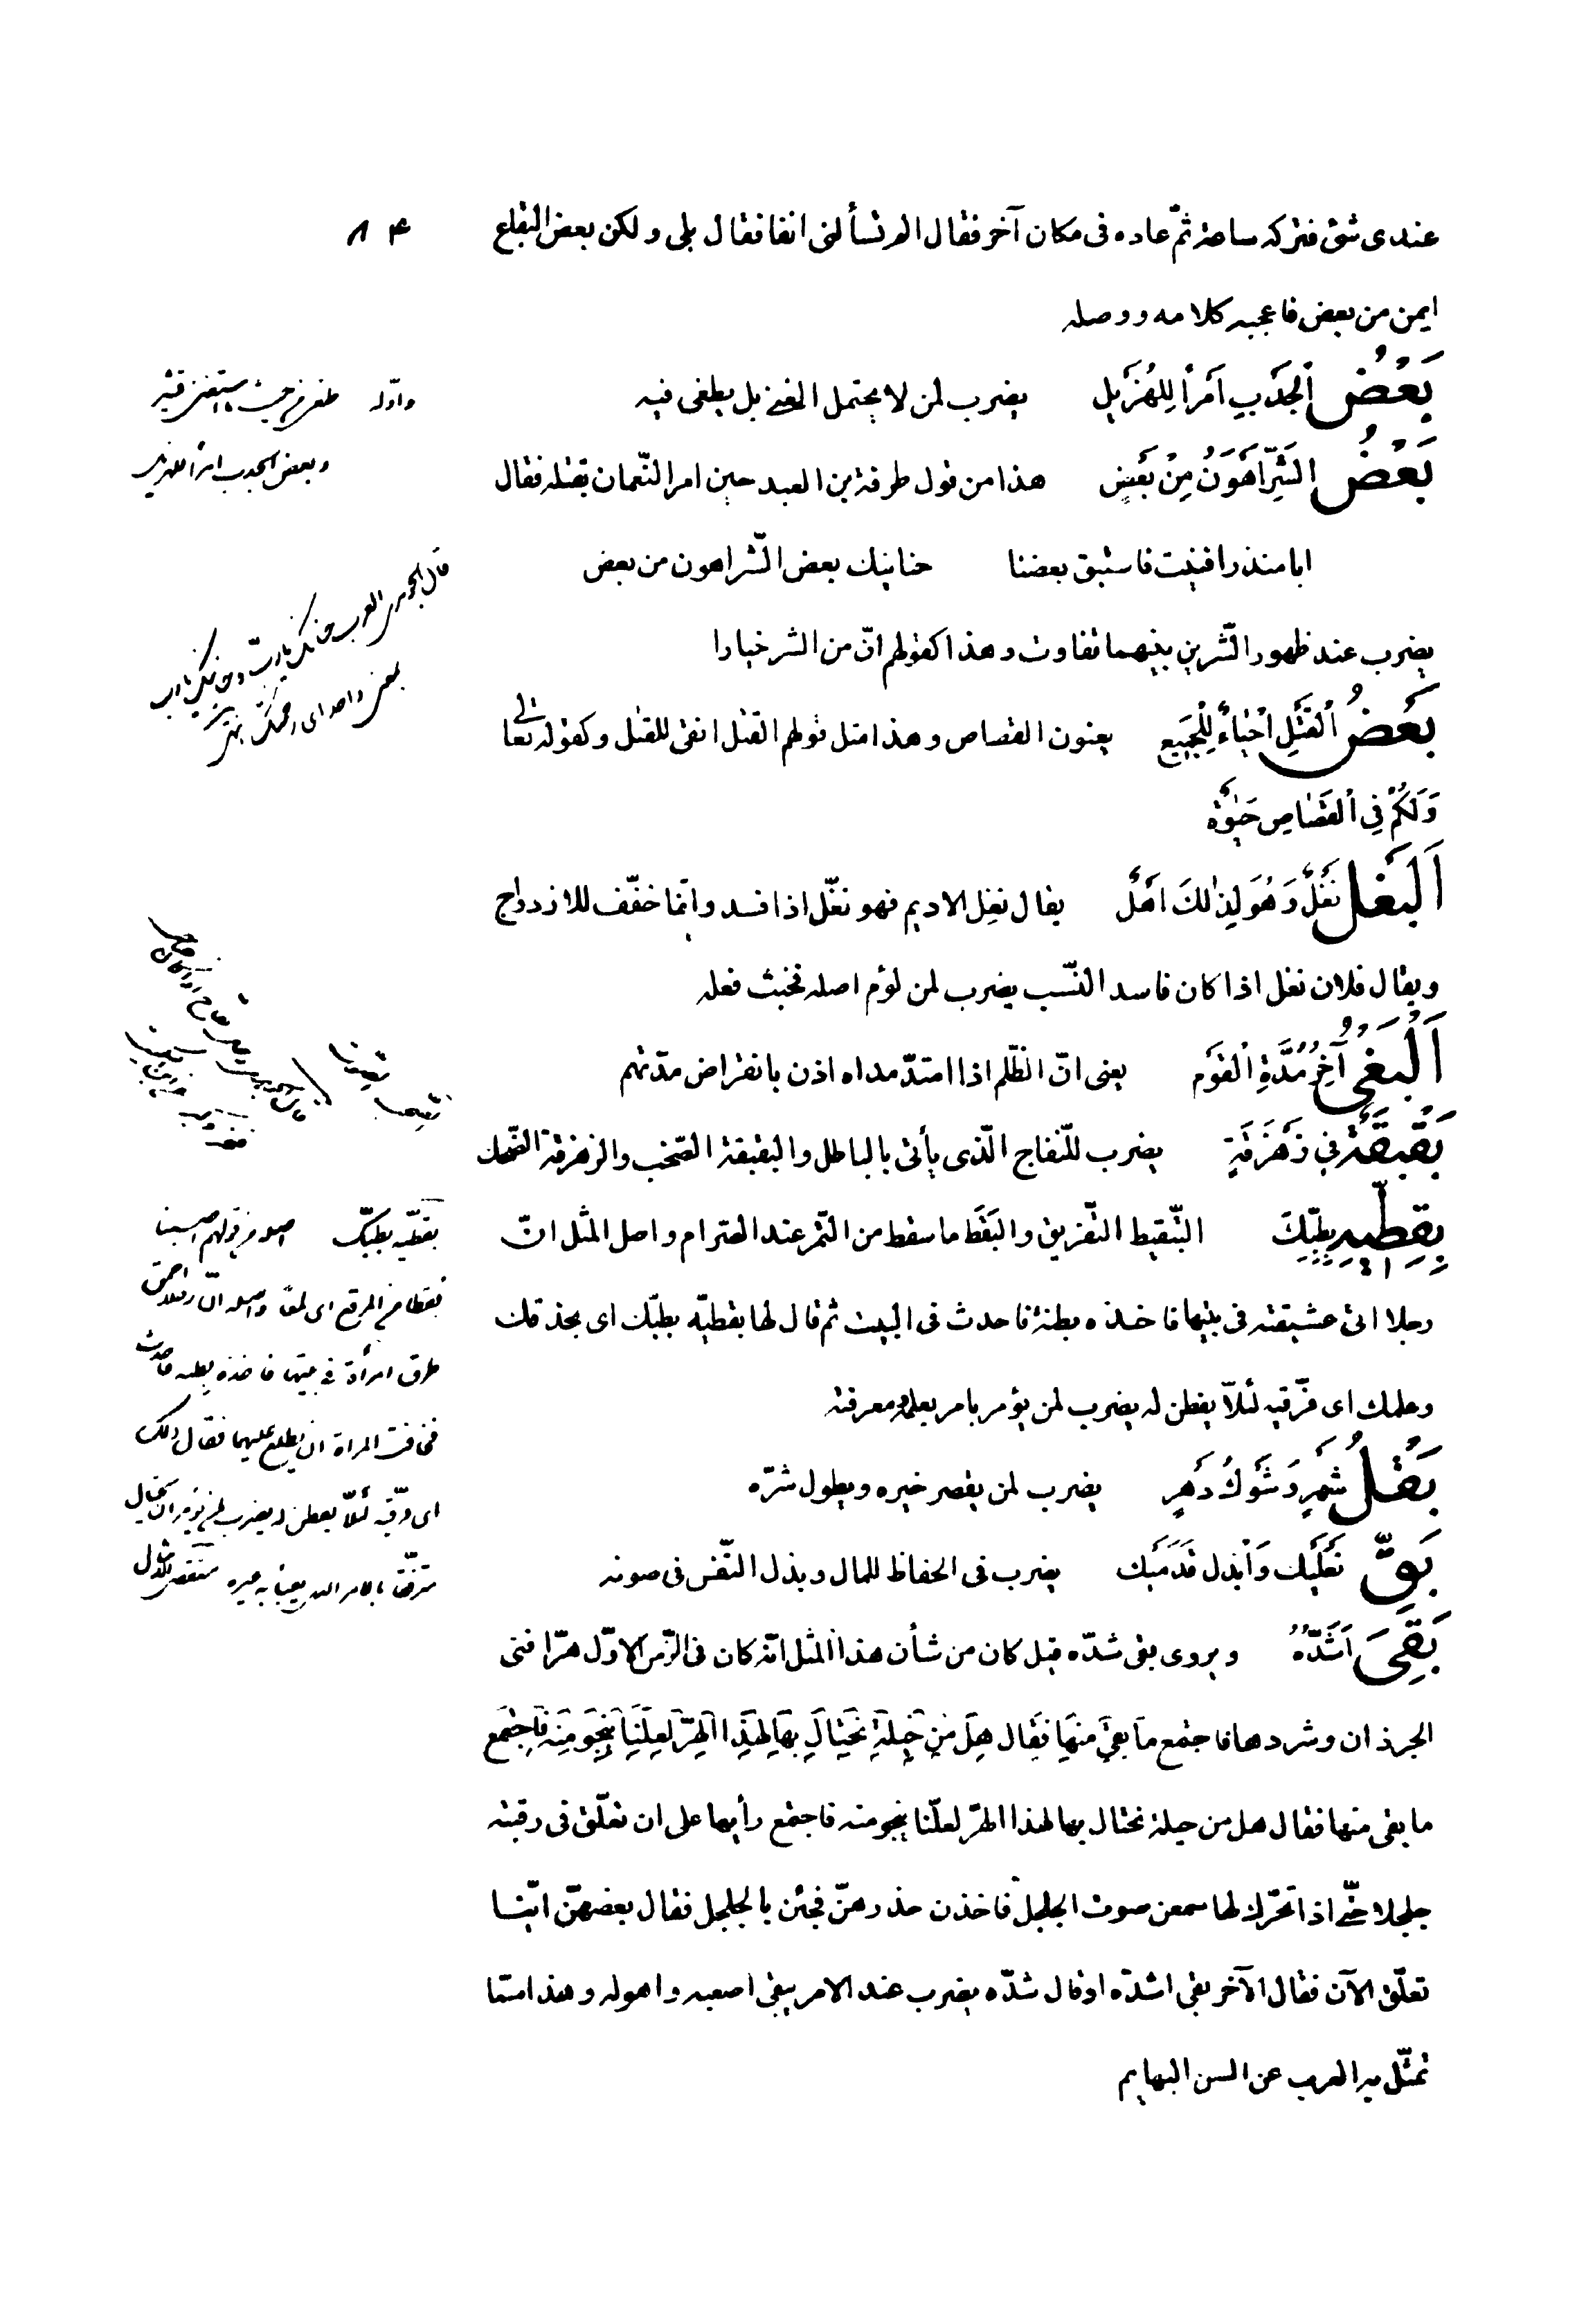 عندى شئ فتركه ساعة ثمّ عاده فى مكان آخر فقال الم تسألنى انفا فقال بلى و لكن بعض البقاع
٨٤
ايمن من بعض فاعجبه كلامه و وصله
بَعْضُ الْجَدْبِ اَمْرَأُ لِلْهَزِيلِ يضرب لمن لا يحتمل الغنى بل يطغى فيه
بَعْضُ الشَّرِّ اَهْوَنُ مِنْ بَعْضٍ هذا من قول طرفة بن العبد حين امر النّعمان بقتله فقال
ابا منذر افنيت فاستبق بعضنا حنانيك بعض الشّر اهون من بعض
يضرب عند ظهور الشّرين بينهما تفاوت و هذا كقولهم انّ من الشر خيارا
بَعْضُ الْقَتْلِ اِحْيَاءٌ لِلْجَمِيعِ يعنون القصاص و هذا مثل قولهم القتل انفى للقتل و كقوله تعالى
وَلَكُمْ فِى الْقِصَاصِ حَيٰوةٌ
اَلْبَغْلُ نَغْلٌ وَ هُوَ لِذٰلِكَ اَهْلٌ يقال نغِل الاديم فهو نغّل اذا فسد و انّما خفّف للازدواج
و يقال فلان نغل اذا كان فاسد النّسب يضرب لمن لؤم اصله فخبث فعله
اَلْبَغْىُ آخِرُ مُدَّةِ الْقَوْمِ يعنى انّ الظّلم اذا امتدّ مداه اذن بانقراض مدّتهم
بَقْبَقَةٌ فِى زَهْزَقَةٍ يضرب للنّفاج الّذى يأتى بالباطل و البقبقة الصّخب و الزهزقة الضّحك
بَقِّطِيهِ بِطِبِّكِ التّبقيط التّفريق و البَقَط ما سقط من التّمر عند الصّرام و اصل المثل انّ
رجلا اتى عشيقته فى بيتها فاخذه بطنه فاحدث فى البيت ثم قال لها بقطيه بطبّك اى بحذقك
و علمك اى فرّقيه لئلّا يفطن له يضرب لمن يؤمر بامر بعلم و معرفته
بَقْلُ شَهْرٍ وَ شَوْكُ دَهْرٍ يضرب لمن يقصر خيره و يطول شرّه
بَقِّ نَعْلَيْكَ وَ ابْذِلْ قَدَمَيْكَ يضرب فى الحفاظ للمال و بذل النّفس فى صونه
بَقِىَ اَشَدُّهُ و يروى بقى شدّه قيل كان من شأن هذا المثل انّه كان فى الزّمن الاوّل هرّ افنى
الجرذان و شردها فاجتمع ما بقى منها فقال هل من حيلة نحتال بها لهذا الهرّ لعلنا ننجو منه فاجتمع
ما بقى منها فقال هل من حيلة نحتال بها لهذا الهرّ لعلّنا ننجو منه فاجتمع رأيها على ان تعلّق فى رقبته
جلجلا حتّى اذا تحرّك لها سمعن صوت الجلجل فاخذن حذرهنّ فجئن بالجلجل فقال بعضهنّ ايّنا
تعلّق الآن فقال الآخر بقى اشدّه او قال شدّه يضرب عند الامر يبقى اصعبه و اهوله و هذا ممّا
تمثّل به العرب عن السن البهايم
و اوّله
و بعض الجدب امرأ للهزيل
قال الجوهرى العرب حنانك يا رب و حنانيك يا رب
بمعنى واحد اى رحمتك
بقطيه بطبك اصله من قولهم
بقطا من المرقع اى و اصله انّ رجلا احمق
طرق امرأة فى بيتها فاخذه بطنه فاحدث
فخافت المرأة ان يطلع عليهما فقال ذلك
اى فرّقيه لئلّا يفطن له يضرب لمن يؤمر